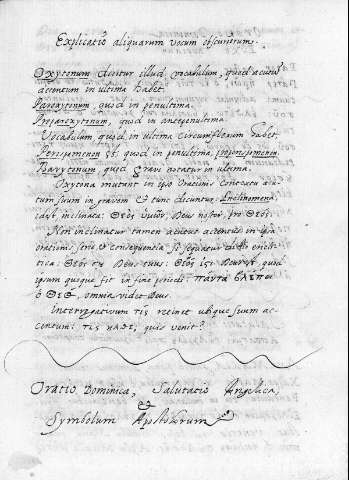 Explicatio aliquarum vocum obscurarum.
Oxytonum dicitur illud vocabulum, quod acutum
accentum in ultima habet.
Paroxytonum quod in penultima.
Proparoxytonum, quod in antepenultima.
Vocabulum quod in ultima circumflexum habet,
Perispomenon est: quod in penultima, properispomenon.
Barytonum, quod gravi notatur in ultima.
Oxytona mutant in ipso orationis contextu acu-
tum suum in gravem et tunc dicuntur Enclinomena,
id est inclinata: Θεὸς ἡμῶν, Deus noster, pro Θεός.
Non inclinatur tamen acutus accentus in ipsa
orationis serie et consequentia, si sequatur enclit-
tica: Θεός Deus tuus: Θεός ἐστι Deus est, quod
ipsum quoque fit in fine periodi: πάντα βλέπει
ὁ Θεός, omnia videt Deus.
Interrogativum τίς retinet ubique suum ac-
centum: τίς ἦλθε; quis venit?
Oratio Dominica, Salutatio Angelica,
&
Symbolum Apostolorum